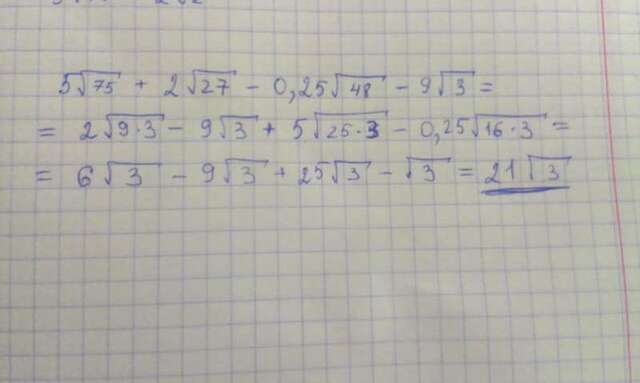 5√75 + 2√27 - 0,25√48 - 9√3 =
= 2√9·3 - 9√3 + 5√25·3 - 0,25√16·3 =
= 6√3 - 9√3 + 25√3 - √3 = 21√3